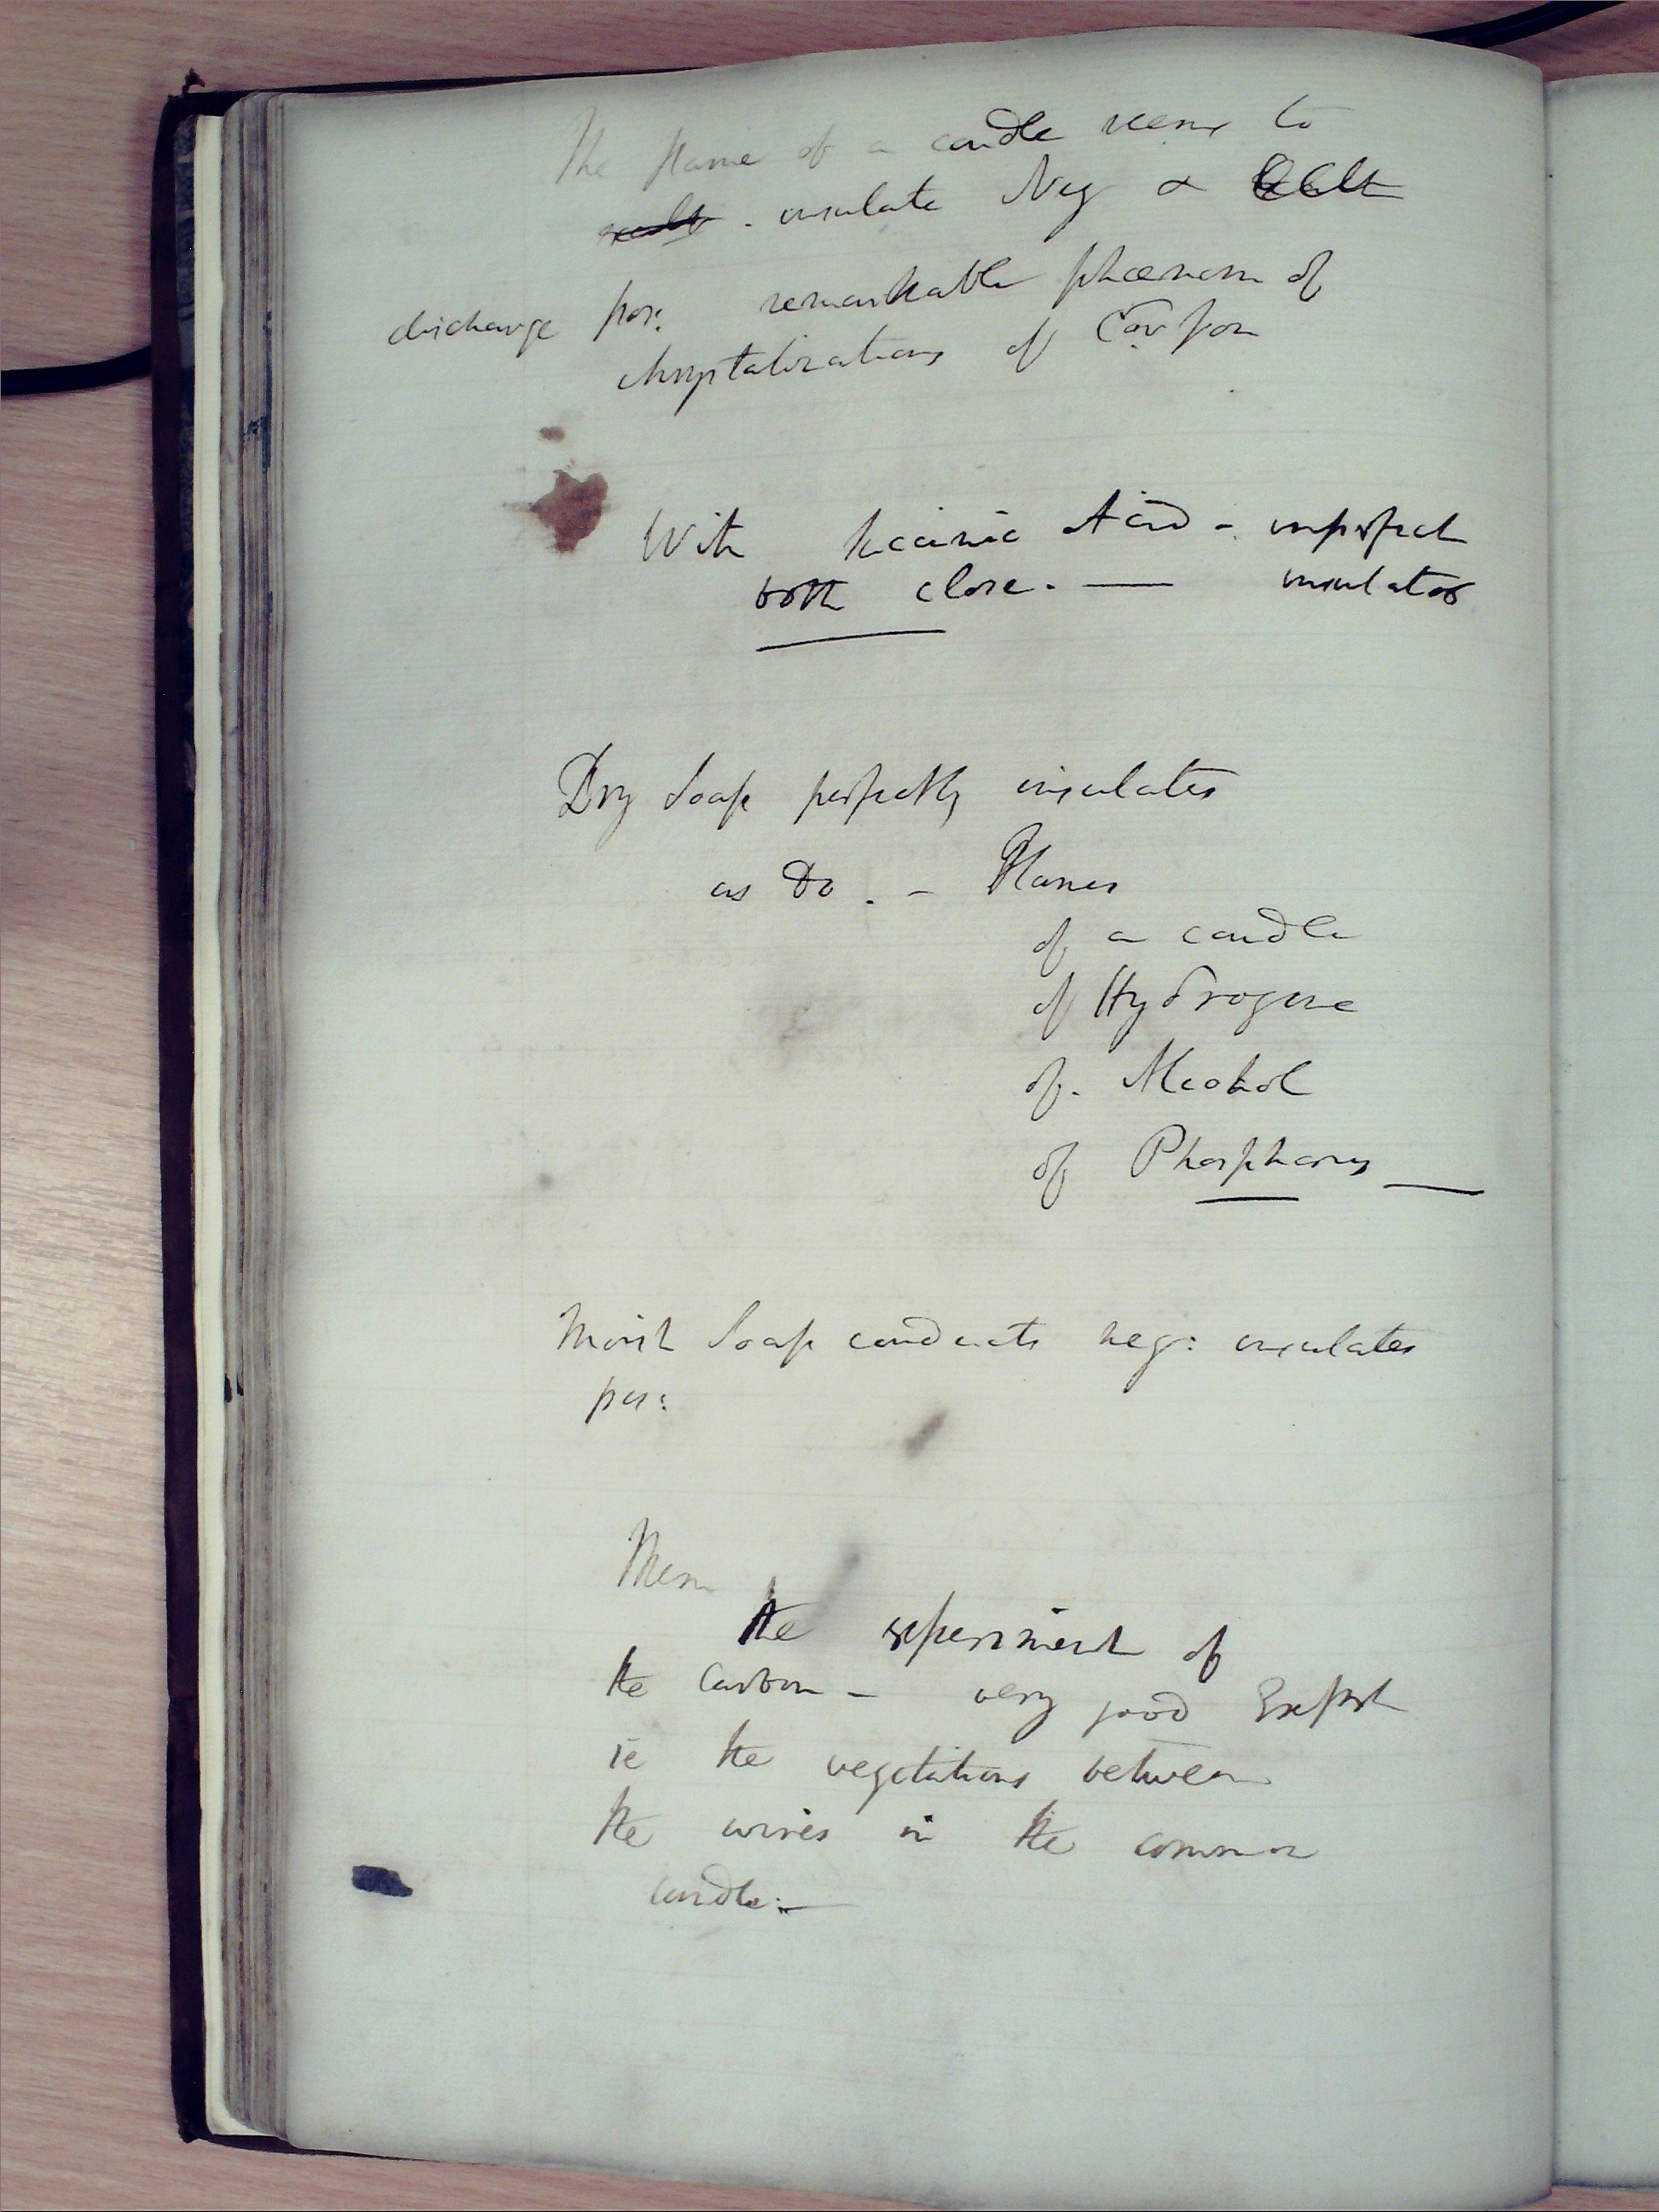 The flame of a candle seems to
insulate Neg &
discharge pos: remarkable phænom of
chrystalizations of Carbon
With succinic Acid - imperfect
both close. — insulator
Dry Soap perfectly insulates
as do. - Flames
of a candle
of Hydrogene
of. Alcohol
of Phosphorus —
Moist Soap conducts neg: insulates
pos:
Mem
the experiment of
the Carbon - very good Expert
ie the vegetations between
the wires in the common
candle:—